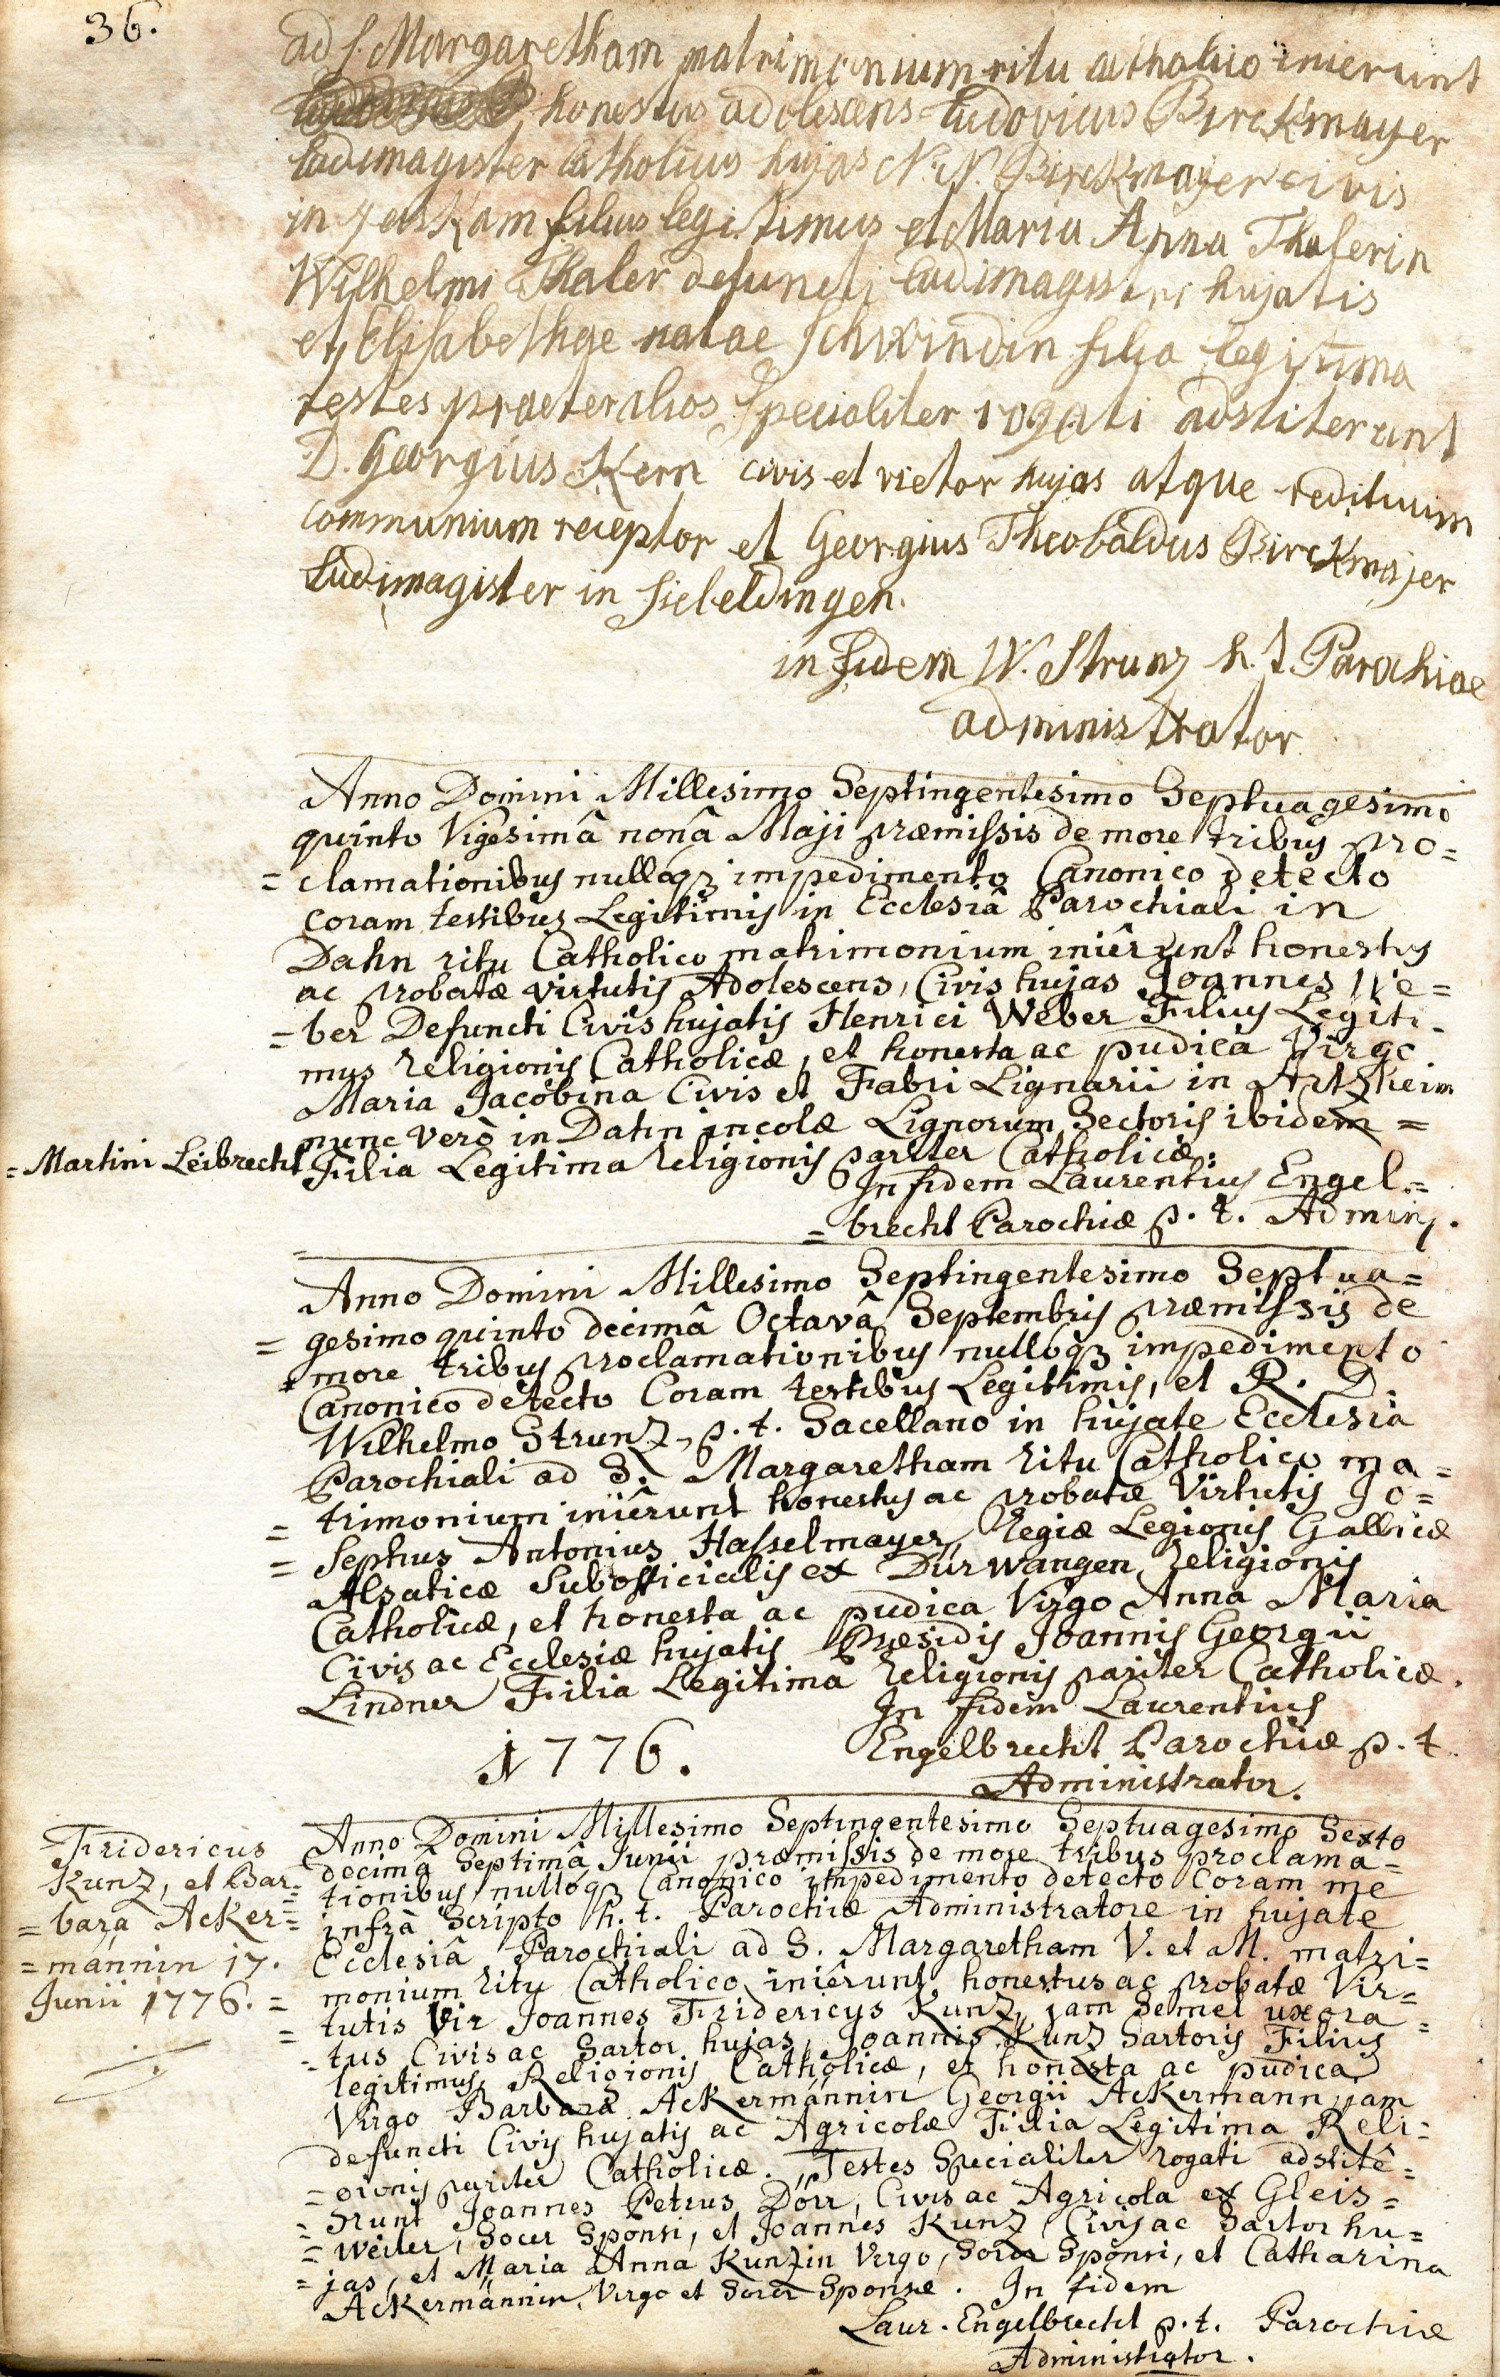 36.
ad S. Margaretham matrimonium ritu catholico inierunt
honestus adolescens Ludovicus Birckmayer
Ludimagister catholicus hujas N. N. Birckmayer civis
in filius legitimus et Maria Anna Thalerin
Wilhelmi Thaler defuncti Ludimagistri hujatis
et Elisabethae natae Schwindin filia legitima
testes praeter alios Specialiter rogati adstiterunt
D. Georgius Kern civis et vietor hujas atque redituum
communium receptor et Georgius Theobaldus Birckmajer
Ludimagister in Siebeldingen.
in fidem W. Strunz h. t. Parochiae
administrator
Anno Domini Millesimo Septingentesimo Septuagesimo
quinto Vigesimâ nonâ Maji præmissis de more tribus pro=
= clamationibus nulloq₃ impedimento Canonico detecto
coram testibus Legitimis in Ecclesiâ Parochiali in
Dahn ritu Catholico matrimonium iniêrunt honestus
ac probatæ virtutis Adolescens, Civis hujas Joannes We=
= ber Defuncti Civis hujatis Henrici Weber Filius Legiti=
mus religionis Catholicæ, et honesta ac pudica Virgo
Maria Jacobina Civis et Fabri Lignarii in Artzheim
nunc verò in Dahn incolæ Lignorum Sectoris ibidem =
= Martini Leibrecht Filia Legitima religionis pariter Catholicæ.
In fidem Laurentius Engel=
= brecht Parochiæ p. t. Admin.
Anno Domini Millesimo Septingentesimo Septua=
= gesimo quinto decimâ Octavâ Septembris præmissis de
more tribus proclamationibus nulloq₃ impedimento
Canonico detecto Coram testibus Legitimis, et R. D.
Wilhelmo Strunz, p. t. Sacellano in hujate Ecclesia
Parochiali ad S. Margaretham ritu Catholico ma=
= trimonium iniêrunt honestus ac probatæ Virtutis Jo=
= sephus Antonius Hasselmayer, Regiæ Legionis Gallicæ
Alsaticæ Subofficialis ex Dürwangen, religionis
Catholicæ, et honesta ac pudica Virgo Anna Maria
Civis ac Ecclesiæ hujatis Præsidis Joannis Georgii
Lindner Filia Legitima religionis pariter Catholicæ.
In fidem Laurentius
Engelbrecht Parochiæ p. t.
Administrator.
1776.
Fridericus
Kunz, et Bar=
= bara Acker=
= männin 17.
Junii 1776.
Anno Domini Millesimo Septingentesimo Septuagesimo Sexto
decimâ Septimâ Junii præmissis de more tribus proclama=
tionibus nulloq₃ Canonico impedimento detecto Coram me
infrà Scripto h. t. Parochiæ Administratore in hujate
Ecclesiâ Parochiali ad S. Margaretham V. et M. matri=
= monium ritu Catholico iniêrunt honestus ac probatæ Vir=
= tutis Vir Joannes Fridericus Kunz, jam Semel uxora=
= tus Civis ac Sartor hujas, Joannis Kunz Sartoris Filius
legitimus Religionis Catholicæ, et honesta ac pudica
Virgo Barbara Ackermännin Georgii Ackermann, jam
defuncti Civis hujatis ac Agricolæ Filia Legitima Reli=
= gionis pariter Catholicæ. Testes Specialiter rogati adstitê=
= runt Joannes Petrus Dörr, Civis ac Agricola ex Gleis=
= weiler, Socer Sponsi, et Joannes Kunz Civis ac Sartor hu=
= jas, et Maria Anna Kunzin Virgo, Soror Sponsi, et Catharina
Ackermännin, Virgo et Soror Sponsæ. In fidem
Laur. Engelbrecht p. t. Parochiæ
Administrator.